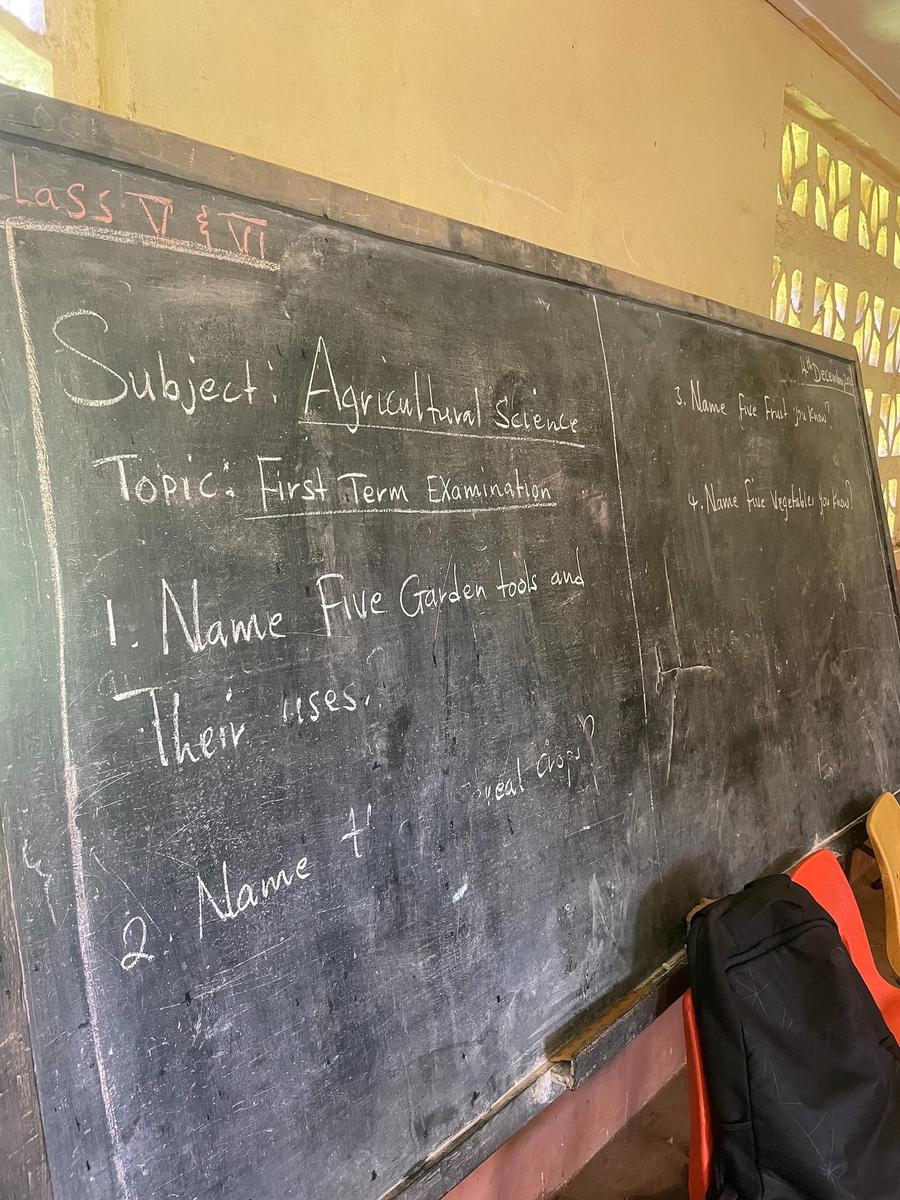 Lass V & VI
Subject: Agricultural Science
Topic: First Term Examination
1. Name Five Garden tools and
Their uses.
2. Name real Crops?
4th December
3. Name five Fruit you Know?
4. Name Five Vegetables you Know?